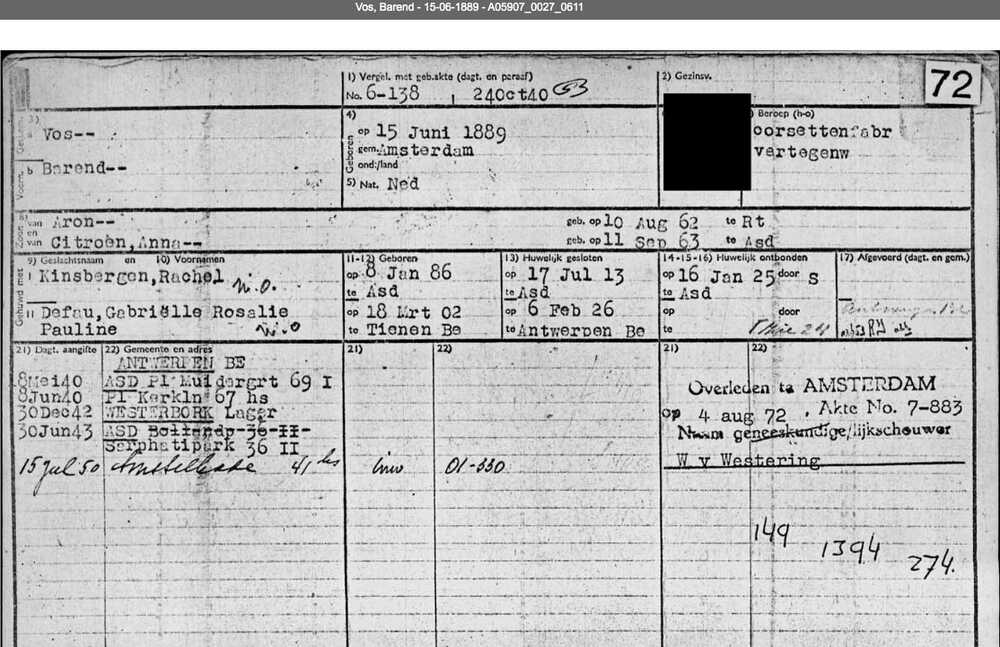 Vos, Barend - 15-06-1889 - A05907_0027_0611
1) Vergel. met geb.akte (dagt. en paraaf)
No. 6-138 24Oct40
2) Gezinsv.
72
3)
a Vos--
b Barend--
4)
Geboren
op 15 Juni 1889
gem. Amsterdam
ond:/land
5) Nat. Ned
Beroep (h-o)
oorsettenfabr
vertegenw
8)
Zoon
van Aron-- geb. op 10 Aug 62 te Rt
en
van Citroen,Anna-- geb. op 11 Sep 63 te Asd
9) Geslachtsnaam en 10) Voornamen
Gehuwd met
I Kinsbergen,Rachel N.O.
II Defau,Gabriëlle Rosalie
Pauline N.O
11-12) Geboren
op 8 Jan 86
te Asd
op 18 Mrt 02
te Tienen Be
13) Huwelijk gesloten
op 17 Jul 13
te Asd
op 6 Feb 26
te Antwerpen Be
14-15-16) Huwelijk ontbonden
op 16 Jan 25 door S
te Asd
op door
te
17) Afgevoerd (dagt. en gem.)
21) Dagt. aangifte 22) Gemeente en adres
ANTWERPEN BE
8Mei40 ASD Pl Muidergrt 69 I
8Jun40 Pl Kerkln 67 hs
30Dec42 WESTERBORK Lager
30Jun43 ASD Bollandp 36 II-
Serphatipark 36 II
15 Jul 50 Amstelkade 41 hs inw 01-330
21) 22)
21) 22)
Overleden te AMSTERDAM
op 4 aug 72 , Akte No. 7-883
Naam geneeskundige/lijkschouwer
W v Westering
149
1394
274.